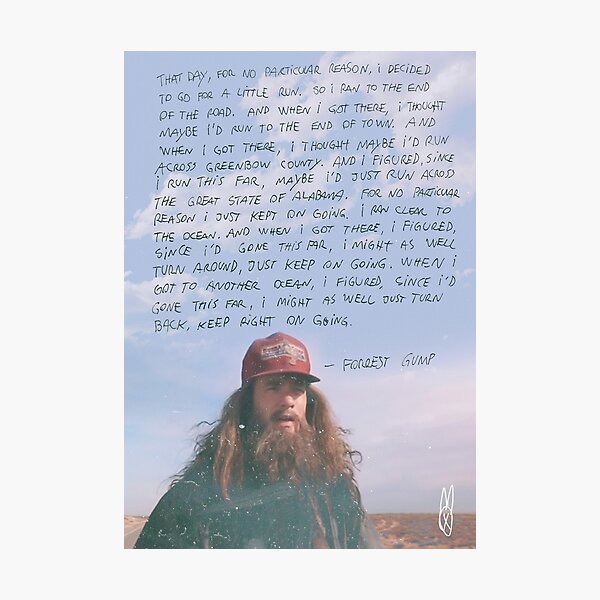 THAT DAY, FOR NO PARTICULAR REASON, i DECIDED
TO GO FOR A LITTLE RUN. SO i RAN TO THE END
OF THE ROAD. AND WHEN i GOT THERE, i THOUGHT
MAYBE i'D RUN TO THE END OF TOWN. AND
WHEN i GOT THERE, i THOUGHT MAYBE i'D RUN
ACROSS GREENBOW COUNTY. AND i FIGURED, SINCE
i RUN THIS FAR, MAYBE i'D JUST RUN ACROSS
THE GREAT STATE OF ALABAMA. FOR NO PARTICULAR
REASON i JUST KEPT ON GOING. i RAN CLEAR TO
THE OCEAN. AND WHEN i GOT THERE, i FIGURED,
SINCE i'D GONE THIS FAR, i MIGHT AS WELL
TURN AROUND, JUST KEEP ON GOING. WHEN i
GOT TO ANOTHER OCEAN, i FIGURED, SINCE i'D
GONE THIS FAR, i MIGHT AS WELL JUST TURN
BACK, KEEP RIGHT ON GOING.
– FORREST GUMP